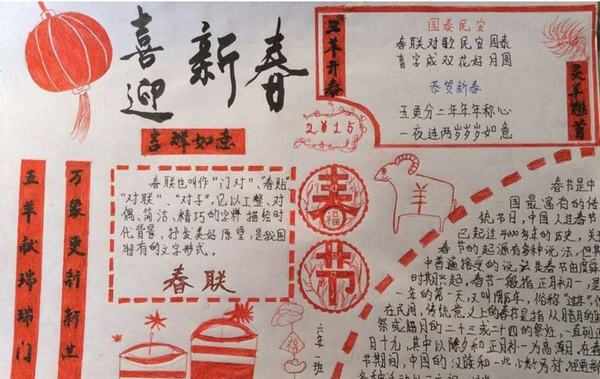 喜迎
新春
吉祥如意
国泰民安
春联对歌民安国泰
喜字成双花好月圆
恭贺新春
玉羹分二年年年称心
一夜连两岁岁岁如意
三羊开春
灵羊雄首
2015
万象更新新
五羊献瑞瑞门
春联也叫作“门对”、“春贴”
“对联”、“对子”,它以工整、对
偶、简洁、精巧的字样描绘时
代背景,抒发美好愿望,是我国
特有的文字形式。
春联
春
福
节
羊
六年一班
春节是中
国最富有的传
统节日,中国人过春节
已起过4000多年的历史,关
春节的起源有多种说法,但
中普遍接受的说法是春节由虞舜
时期兴起,春节一般指正月初一,是
一年的第一天,又叫阴历年,俗称“过年”
在民间,传统意义上的春节是指从腊月的
祭或腊月的二十三或二十四的祭灶,一直到正
月十九,其中以除夕和正月初一为高潮日,在春
节期间,中国的汉族和一些少数